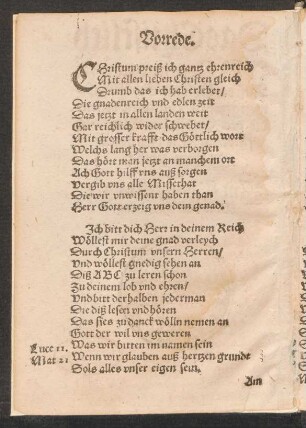 Vorrede.
CHristum preiß ich gantz ehrenreich
Mit allen lieben Christen gleich
Drumb das ich hab erlebet/
Die gnadenreich vnd edlen zeit
Das jetzt in allen landen weit
Gar reichlich wider schwebet/
Mit grosser krafft das Göttlich wort
Welchs lang her was verborgen
Das hört man jetzt an manchem ort
Ach Gott hilff vns auß sorgen
Vergib vns alle Missethat
Die wir vnwissent haben than
Herr Gott erzeig vns dein genad.
Ich bitt dich Herr in deinem Reich
Wöllest mir deine gnad verleych
Durch Christum vnsern Herren/
Vnd wöllest gnedig sehen an
Diß ABC zu leren schon
Zu deinem lob vnd ehren/
Vnd bitt derhalben jederman
Die diß lesen vnd hören
Das sies zu danck wölln nemen an
Gott der wil vns geweren
Luce 11. Was wir bitten im namen sein
Mat 21 Wenn wir glauben auß hertzen grundt
Sols alles vnser eigen sein.
Am